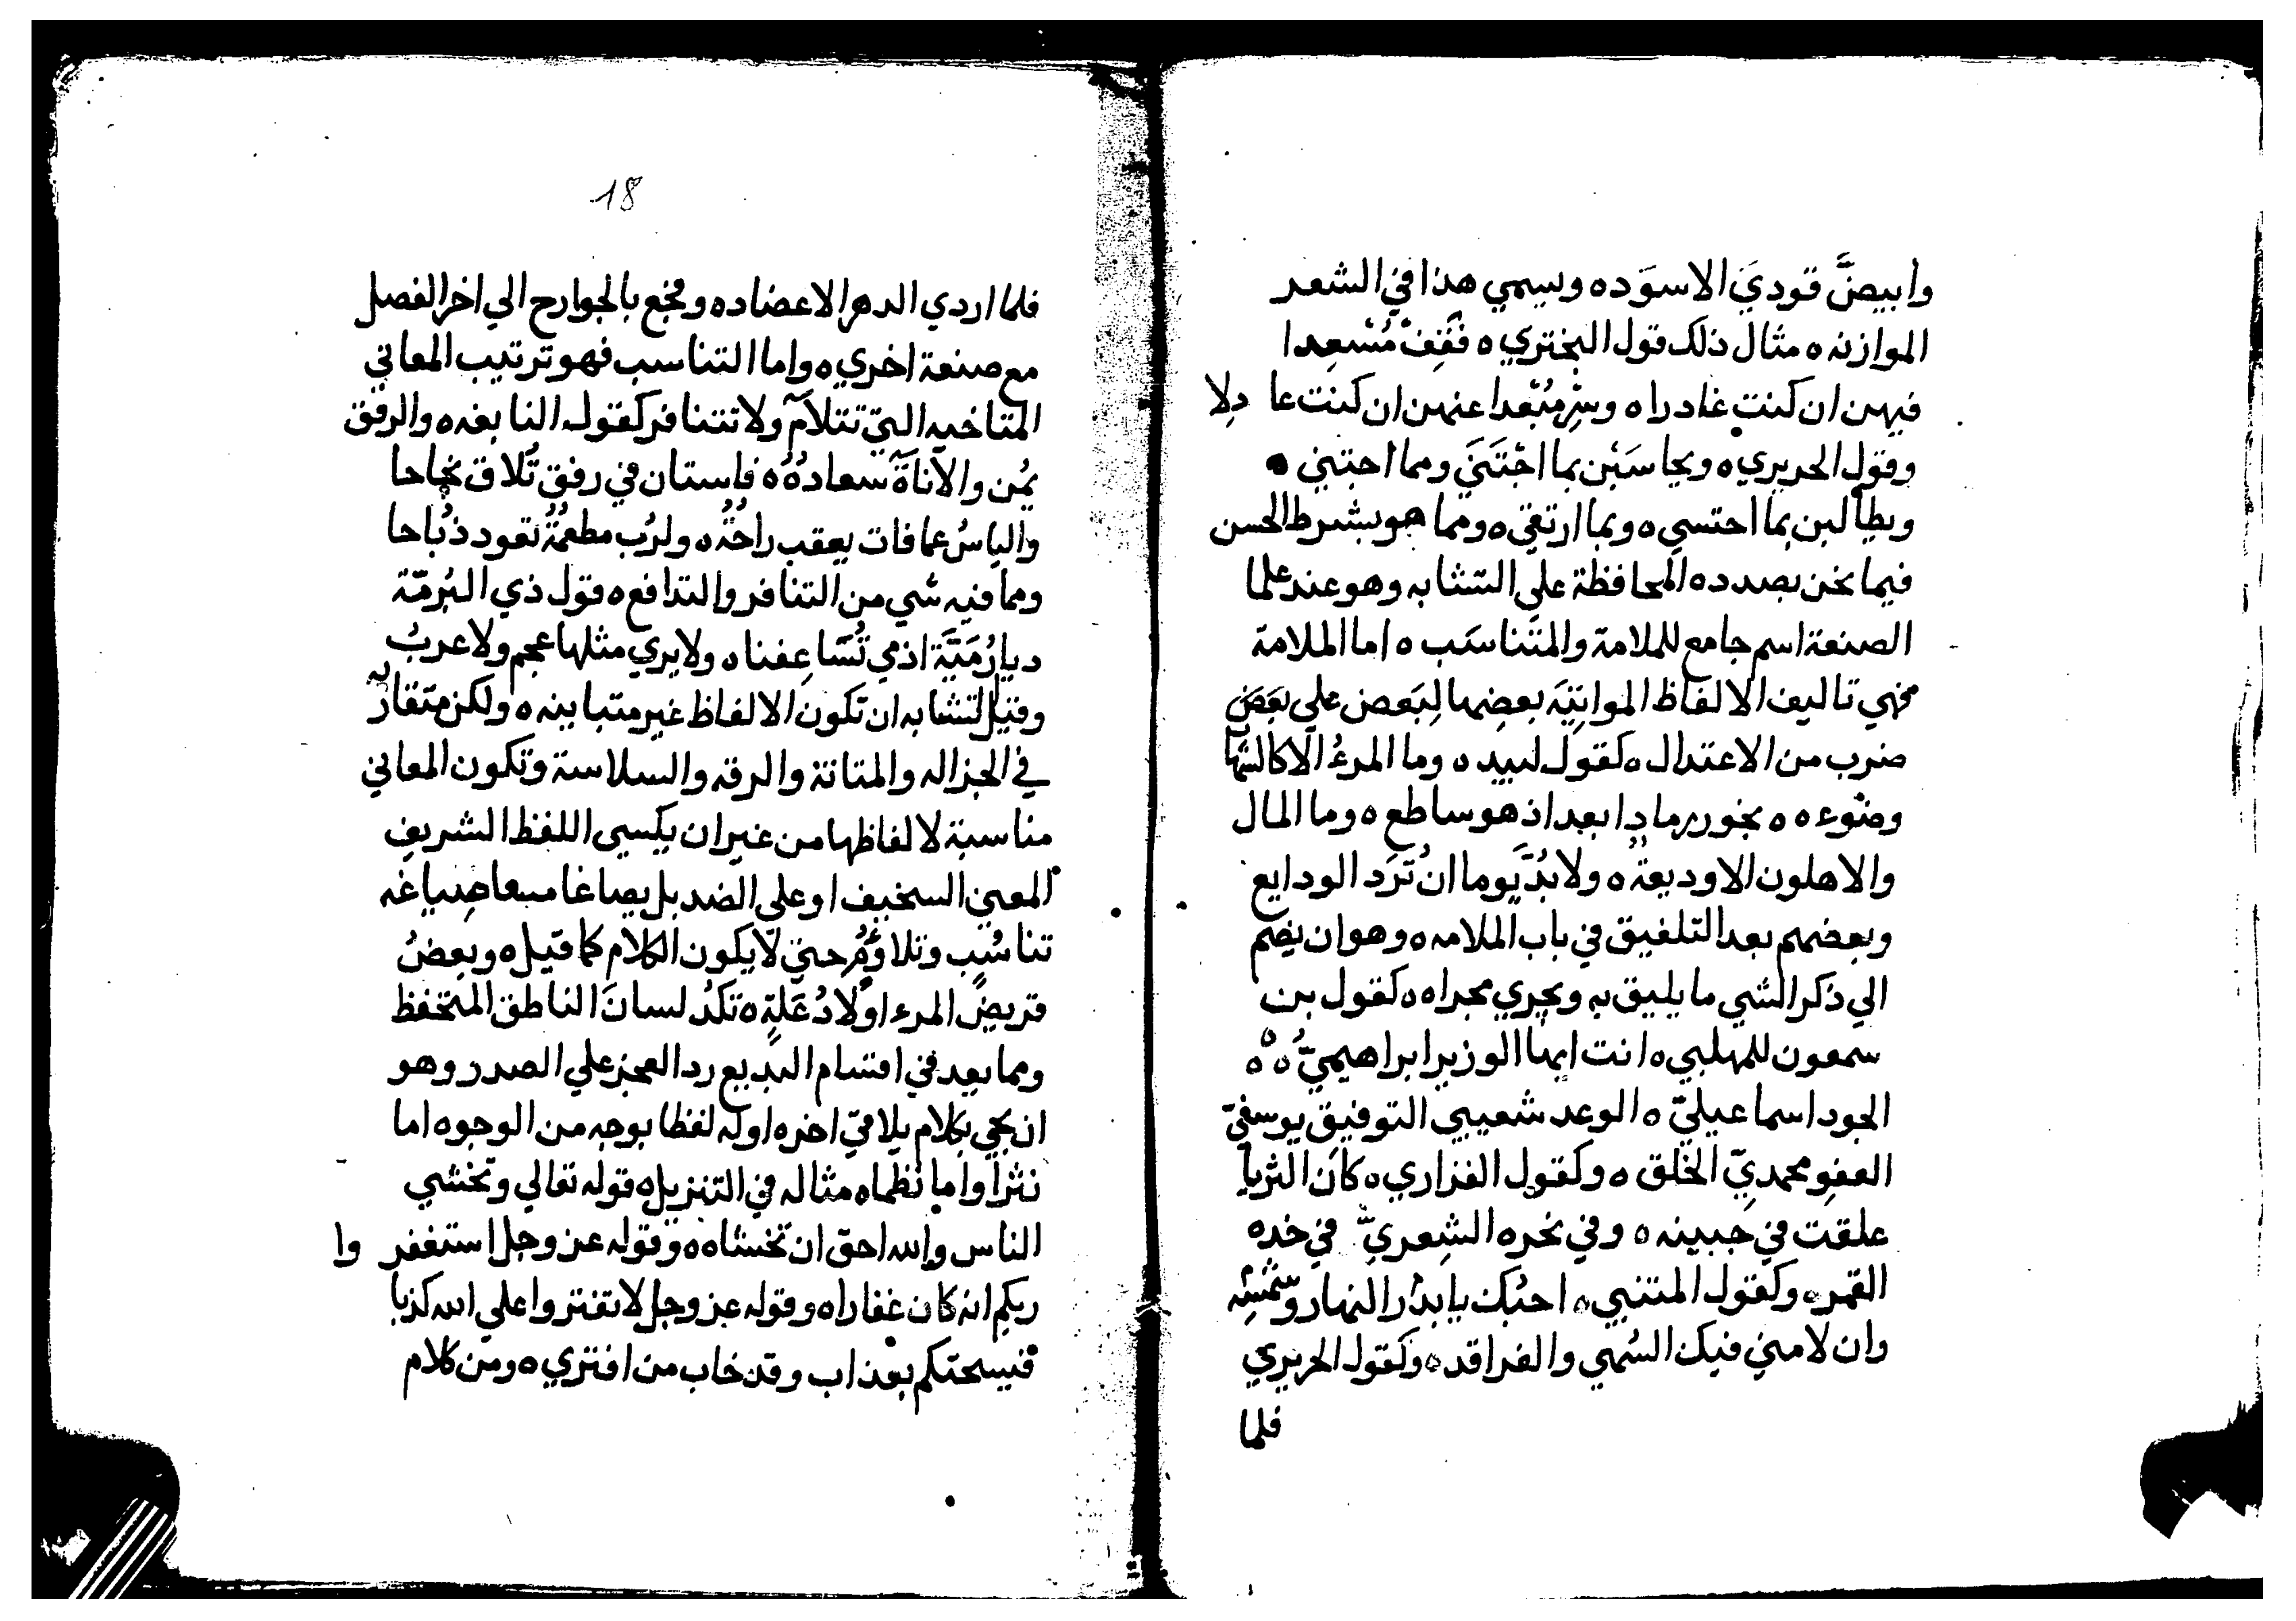 وابيضَّ قوديَ الاسوَده ويسمي هذا في الشعر
الموازنه ه مثال ذلك قول البختري ه فَقِفْ مُسْعِدا
فيهن ان كنت غادراه وسِرْ مُبْعدا عنهن ان كنت عا دلا
وقول الحريري ه ويحاسَبْن بما اجْتَنَي ومما احتبني ه
ويطالبن بما احتسي ه وبما ارتقي ه ومما هو بشرط الحسن
فيما نحن بصدده المحافظة علي التشابه وهو عند علما
الصنعة اسم جامع للملامة والمتناسَب ه اما الملامة
فهي تاليف الالفاظ الموانِيَة بعضِها لبَعض علي بَعَض
ضرب من الاعتدال ه كقول لبيد ه وما المرءُ الّا كالشها
وضْوءه ه يحور رمادا بعد اذ هو ساطع ه وما المال
والاهلون الا وديعةٌ ه ولا بُدَّ يوما انْ تُرَد الودايع
وبعضهم بعد التلفيق في باب الملامه ه وهو ان يضم
الي ذكر الشي ما يليق به ويجري مجراه ه كقول بن
سمعون للمهلبي ه انت ايها الوزير ابراهيميُّ ه ه
الجود اسماعيليّ ه الوعد شعيبي التوفيق يوسفيّ
العفو محمديّ الخلق ه وكقول الفزاري ه كاَن الثريا
علقت في جبينه ه وفي نحره الشِعريّ في خده
القمر ه وكقول المتنبي ه احبُك يا بدْر النهار وشمْسَه
وان لامني فيك السُهي والفراقد ه وكقول الحريري
فلما
18
فلما اردي الدهر الاعضاده وفجع بالجوارح الي اخر الفصل
مع صنعة اخري ه واما التناسب فهو ترتيب المعاني
المتاخيه التي تتلآم ولا تتنافر كقول النابغه ه والرفق
يُمن والآناةُ سعادةُ ه فاستان في رفق تُلاق نجاحا
والياسُ عما فات يعقب راحَةً ه ولرُب مطعمةٌ تعود ذُباحا
ومما فيه شي من التنافر والتدافع ه قول ذي الرُمّة
ديارُ مَيَّة اذ مي تُسَاعِفنا ه ولا يري مثلها عجم ولا عربُ
وقيل لتشابه ان تكون الالفاظ غير متباينه ه ولكن متقاربه
في الجزاله والمتانة والرقه والسلاسة وتكون المعاني
مناسبة لالفاظها من غير ان يكسي اللفظ الشريف
المعني السخيف او علي الضد بل يصاغا معا صياغه
تناسُب وتلاؤُمُ حتي لا يكون الكلام كما قيل ه وبعضُ
قريض المرء اولادُ عَلةٍ ه تكدُ لسانَ الناطق المتحفظ
ومما يعد في اقسام البديع رد العجز علي الصدر وهو
ان يجي بكلام يلاقي اخره اوله لفظا بوجه من الوجوه اما
نثرا واما نظما ه مثاله في التنزيل ه قوله تعالي وتخشي
الناس والله احق ان تخشاه ه وقوله عز وجل استغفر وا
ربكم انه كان غفارا ه وقوله عز وجل لا تفتروا علي الله كذبا
فيسحتكم بعذاب وقد خاب من افتري ه ومن كلام